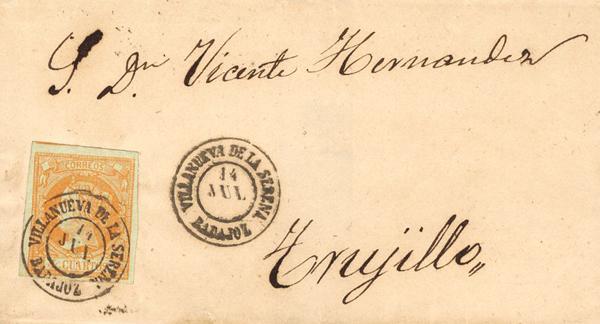 S. Dn Vicente Hernandez
CORREOS
VILLANUEVA DE LA SERENA
14
JUL
BADAJOZ
VILLANUEVA DE LA SERENA
14
JUL
BADAJOZ
CUART
Trujillo,,